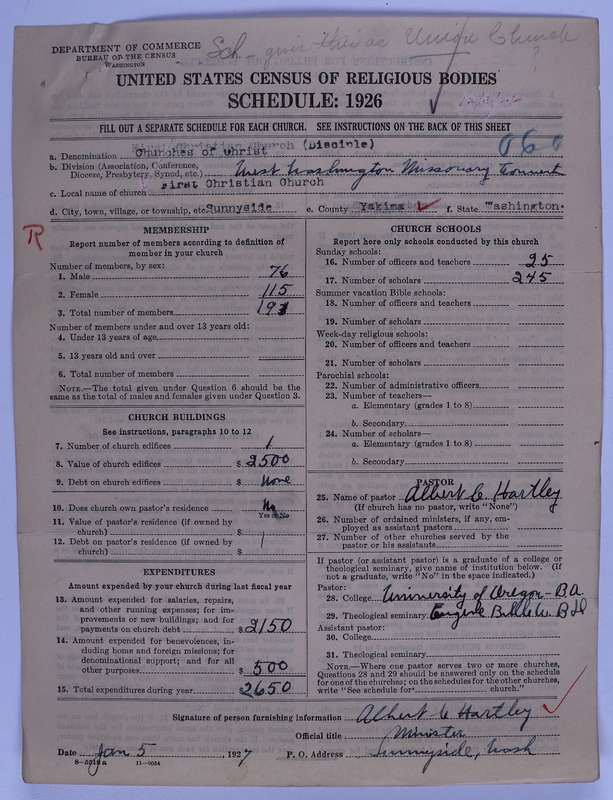 Sch - give this as Union Church
?
DEPARTMENT OF COMMERCE
BUREAU OF THE CENSUS
WASHINGTON
UNITED STATES CENSUS OF RELIGIOUS BODIES
SCHEDULE: 1926
FILL OUT A SEPARATE SCHEDULE FOR EACH CHURCH. SEE INSTRUCTIONS ON THE BACK OF THIS SHEET
First Christian Church (Disciple)
a. Denomination Churches of Christ
b. Division (Association, Conference, Diocese, Presbytery, Synod, etc.) West Washington Missionary
First Christian Church
c. Local name of church
d. City, town, village, or township, etc. Sunnyside e. County Yakima f. State Washington.
R
MEMBERSHIP
Report number of members according to definition of
member in your church
Number of members, by sex:
1. Male 76
2. Female 115
3. Total number of members 191
Number of members under and over 13 years old:
4. Under 13 years of age
5. 13 years old and over
6. Total number of members
NOTE.—The total given under Question 6 should be the
same as the total of males and females given under Question 3.
CHURCH BUILDINGS
See instructions, paragraphs 10 to 12
7. Number of church edifices 1
8. Value of church edifices $ 2500
9. Debt on church edifices $ None
10. Does church own pastor's residence No
Yes or No
11. Value of pastor's residence (if owned by
church) $
12. Debt on pastor's residence (if owned by
church) $
EXPENDITURES
Amount expended by your church during last fiscal year
13. Amount expended for salaries, repairs,
and other running expenses; for im-
provements or new buildings; and for
payments on church debt $ 2150
14. Amount expended for benevolences, in-
cluding home and foreign missions; for
denominational support; and for all
other purposes $ 500
15. Total expenditures during year $ 2650
CHURCH SCHOOLS
Report here only schools conducted by this church
Sunday schools:
16. Number of officers and teachers 25
17. Number of scholars 245
Summer vacation Bible schools:
18. Number of officers and teachers
19. Number of scholars
Week-day religious schools:
20. Number of officers and teachers
21. Number of scholars
Parochial schools:
22. Number of administrative officers
23. Number of teachers—
a. Elementary (grades 1 to 8)
b. Secondary
24. Number of scholars—
a. Elementary (grades 1 to 8)
b. Secondary
PASTOR
25. Name of pastor Albert C. Hartley
(If church has no pastor, write "None")
26. Number of ordained ministers, if any, em-
ployed as assistant pastors
27. Number of other churches served by the
pastor or his assistants
If pastor (or assistant pastor) is a graduate of a college or
theological seminary, give name of institution below. (If
not a graduate, write "No" in the space indicated.)
Pastor:
28. College University of Oregon - BA
29. Theological seminary Eugene Bible U. B D
Assistant pastor:
30. College
31. Theological seminary
NOTE.—Where one pastor serves two or more churches,
Questions 28 and 29 should be answered only on the schedule
for one of the churches; on the schedules for the other churches,
write "See schedule for church."
Signature of person furnishing information Albert C Hartley
Official title Minister
Date Jan 5, 1927 P. O. Address Sunnyside, Wash
8-5518a 11-9054